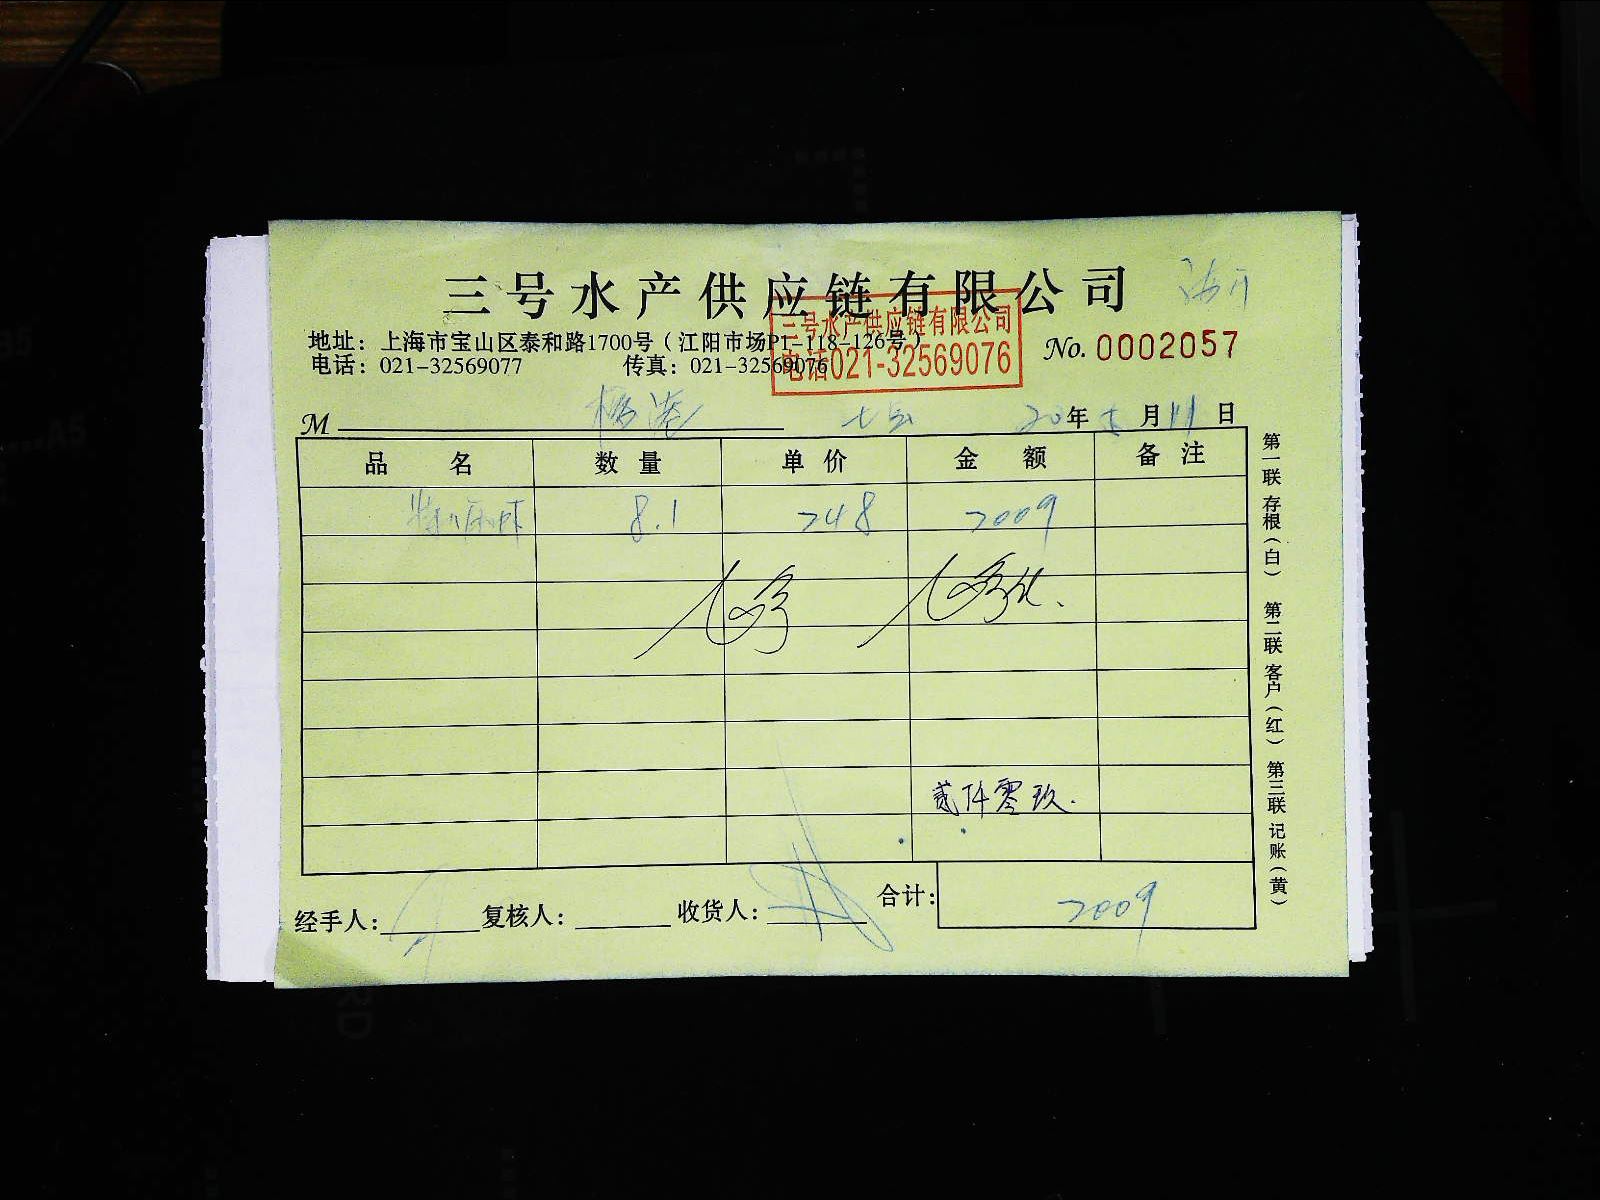 三号水产供应链有限公司
地址：上海市宝山区泰和路1700号（江阳市场P1-118-126号）
电话：021-32569077 传真：021-32569076
三号水产供应链有限公司
电话021-32569076
No. 0002057
M 20年 月11日
品名 数量 单价 金额 备注
8.1 248 2009
贰仟零玖.
经手人： 复核人： 收货人： 合计： 2009
第一联 存根（白） 第二联 客户（红） 第三联 记账（黄）